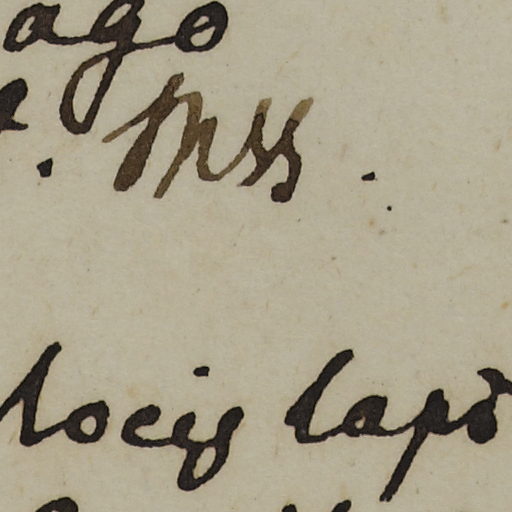 ago
. Mss .
locis lapi